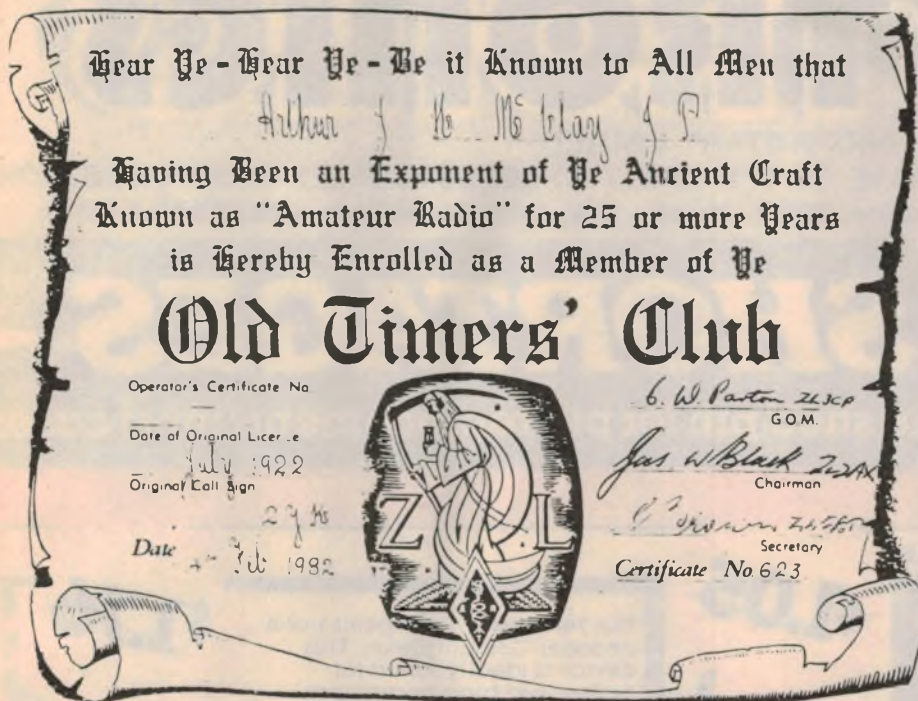 Hear Ye - Hear Ye - Be it Known to All Men that
Arthur J H McClay J P
Having Been an Exponent of Ye Ancient Craft
Known as "Amateur Radio" for 25 or more Years
is Hereby Enrolled as a Member of Ye
Old Timers' Club
Operator's Certificate No
—
Date of Original License
July 1922
Original Call Sign
Date Feb 1982
Z L
G. W. Parton ZL3CP
G.O.M.
Jas W Black ZL2AX
Chairman
Secretary
Certificate No. 623